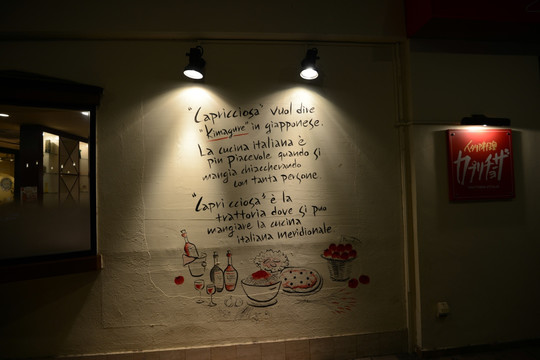 "Capricciosa" vuol dire
"Kimagure" in giapponese.
La cucina italiana è
più piacevole quando si
mangia chiaccherando
con tanta persone
"Capricciosa" è la
trattoria dove si può
mangiare la cucina
italiana meridionale
カプリチョーザ